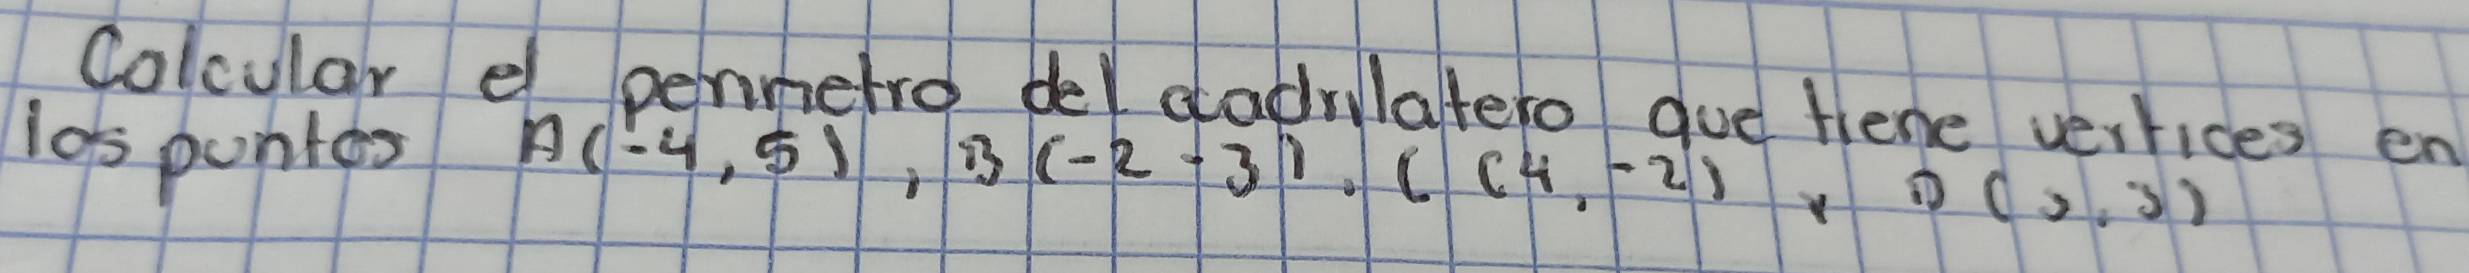 Calcular el perimetro del cuadrilatero que tiene vertices en
los puntos A(-4,5), B(-2-3). C(4,-2) y D(2,3)